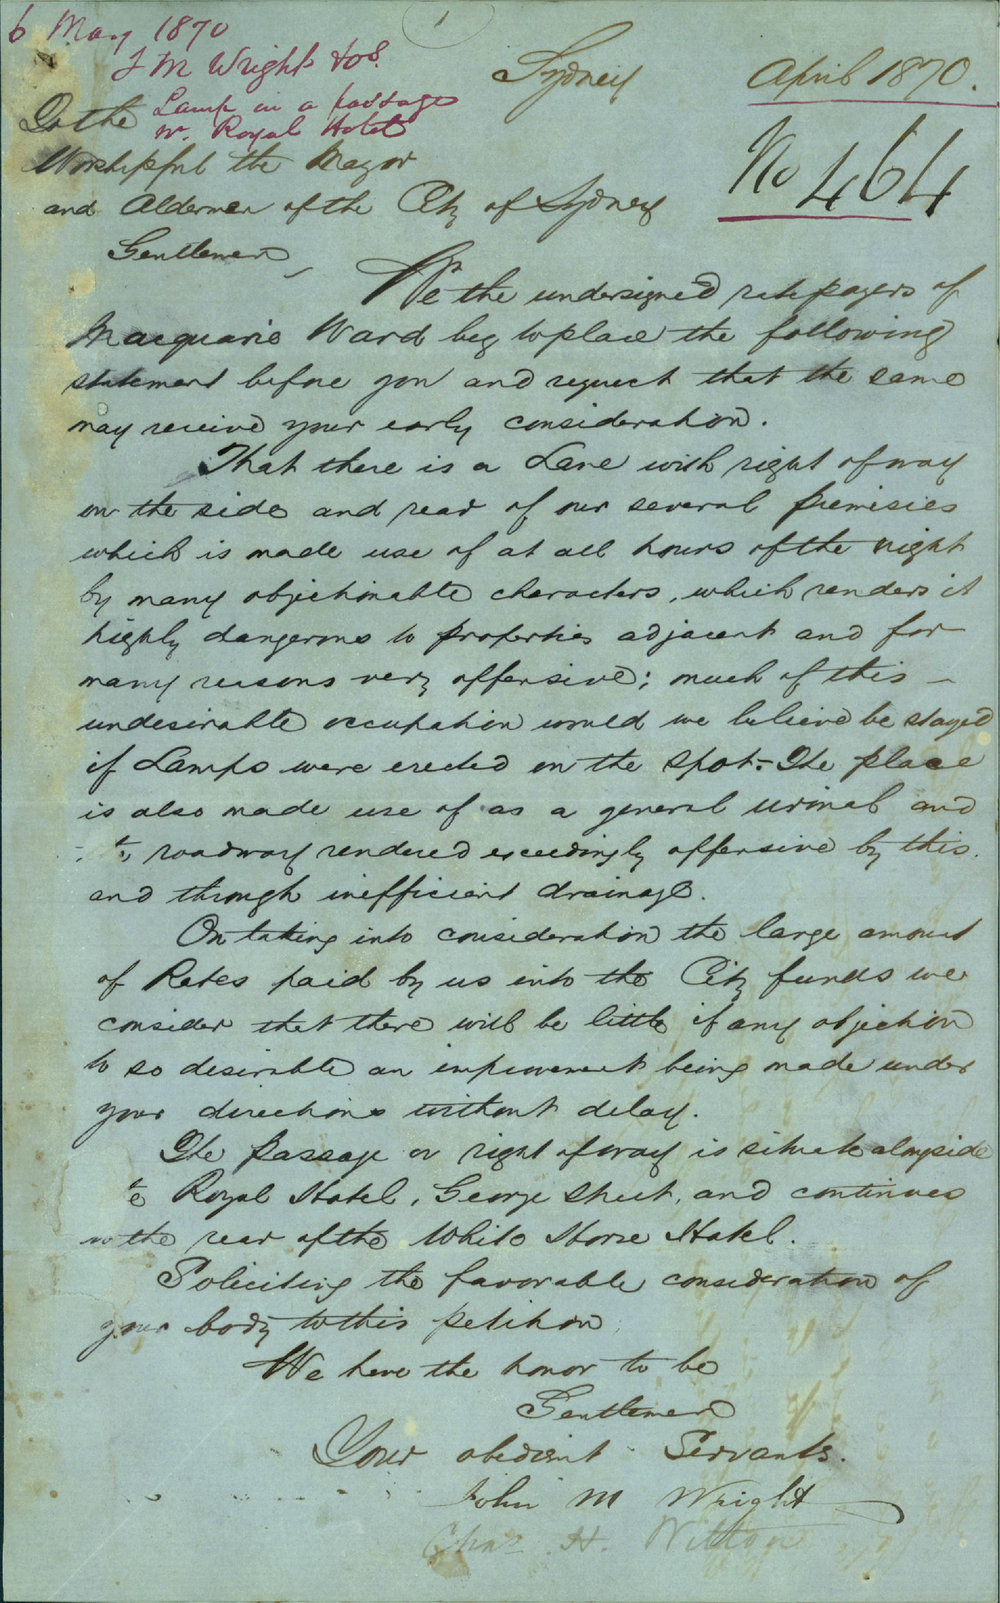 1
6 May 1870
J M Wright & os.
Lamp in a passage
nr. Royal Hotel
Sydney April 1870.
No 464
To the
Worshipful the Mayor
and Aldermen of the City of Sydney
Gentlemen,
We the undersigned ratepayers of
Macquarie Ward beg to place the following
statement before you and request that the same
may receive your early consideration.
That there is a Lane with right of way
on the side and rear of our several premisies
which is made use of at all hours of the night
by many objectionable characters, which renders it
highly dangerous to properties adjacent and for
many reasons very offensive; much of this
undesirable occupation would we believe be stayed
if Lamps were erected on the spot. - The place
is also made use of as a general urinal and
the roadway rendered exceedingly offensive by this.
and through inefficient drainage.
On taking into consideration the large amount
of Rates paid by us into the City funds we
consider that there will be little if any objection
to so desirable an improvement being made under
your directions without delay.
The passage or right of way is situate alongside
the Royal Hotel, George Street, and continues
to the rear of the White Horse Hotel.
Soliciting the favorable consideration of
your body to this petition
We have the honor to be
Gentlemen
Your obedient Servants.
John M Wright
Chas. H. Wilton